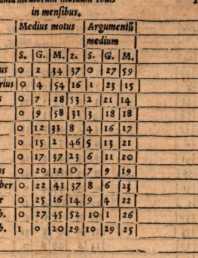 in mensibus.
Medius motus | Argumentū medium
S. | G. | M. | 2. | S. | G. | M.
0 | 2 | 34 | 37 | 0 | 27 | 59
0 | 4 | 54 | 16 | 1 | 23 | 15
0 | 7 | 28 | 53 | 2 | 21 | 14
0 | 9 | 58 | 31 | 3 | 18 | 18
0 | 12 | 33 | 8 | 4 | 16 | 17
0 | 15 | 2 | 46 | 5 | 13 | 21
0 | 17 | 37 | 23 | 6 | 11 | 20
0 | 20 | 12 | 0 | 7 | 9 | 19
ber | 0 | 22 | 41 | 37 | 8 | 6 | 23
r | 0 | 25 | 16 | 14 | 9 | 4 | 22
b. | 0 | 27 | 45 | 52 | 10 | 1 | 26
b. | 1 | 0 | 20 | 29 | 10 | 29 | 25